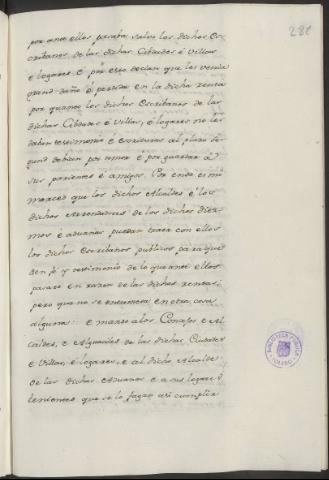 281
por ante ellos pasaba, salvo los dichos Es-
cribanos de las dichas Cibdades é Villas
e logares. E por esto decian que les venia
grand daño é perdida en la dicha renta
por quanto los dichos Escribanos de las
dichas Cibdades é Villas, é logares no les
daban testimonio é escrituras al plazo se-
gund debian por amor é por guardar á
sus parientes é amigos. Por ende es mi
merced que los dichos Alcaldes é los
dichos Arrendadores de los dichos diez-
mos é aduanas puedan tomar con ellos
los dichos Escribanos publicos para que
den fé y testimonio de lo que ante ellos
pasare en razon de las dichas rentas:
pero que no se entrometa en otra cosa
alguna: e mando a los Conçejos e Al-
caldes, e Alguaciles de las dichas Ciudades
e Villas, é logares, e al dicho Alcalde
de las dichas Aduanas e a sus logares
tenientes que se lo fagan asi cumplir
BIBLIOTECA PUBLICA
TOLEDO